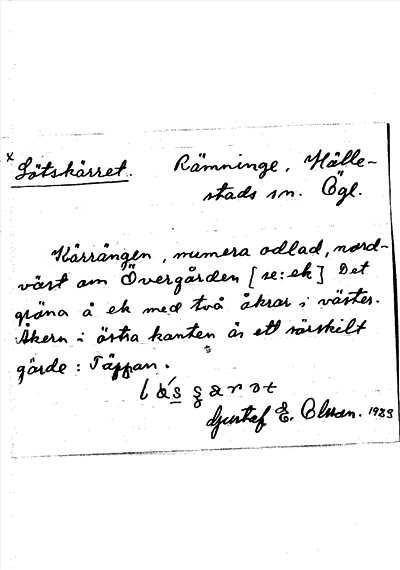 x Lötskärret. Rämninge, Hälle-
stads sn. Ögl.
Kärrängen, numera odlad, nord-
väst om Övergården [se: ek] Det
gröna å ek med två åkrar i väster.
Åkern i östra kanten är ett särskilt
gärde: Täppan.
Gustaf E. Olsson. 1933